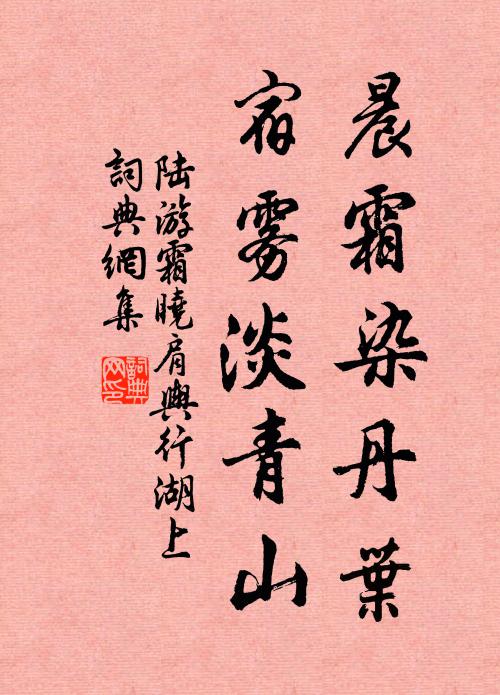 晨霜染丹葉
宿雾淡青山
陆游霜曉肩輿行湖上
詞典網集
詞典
网印